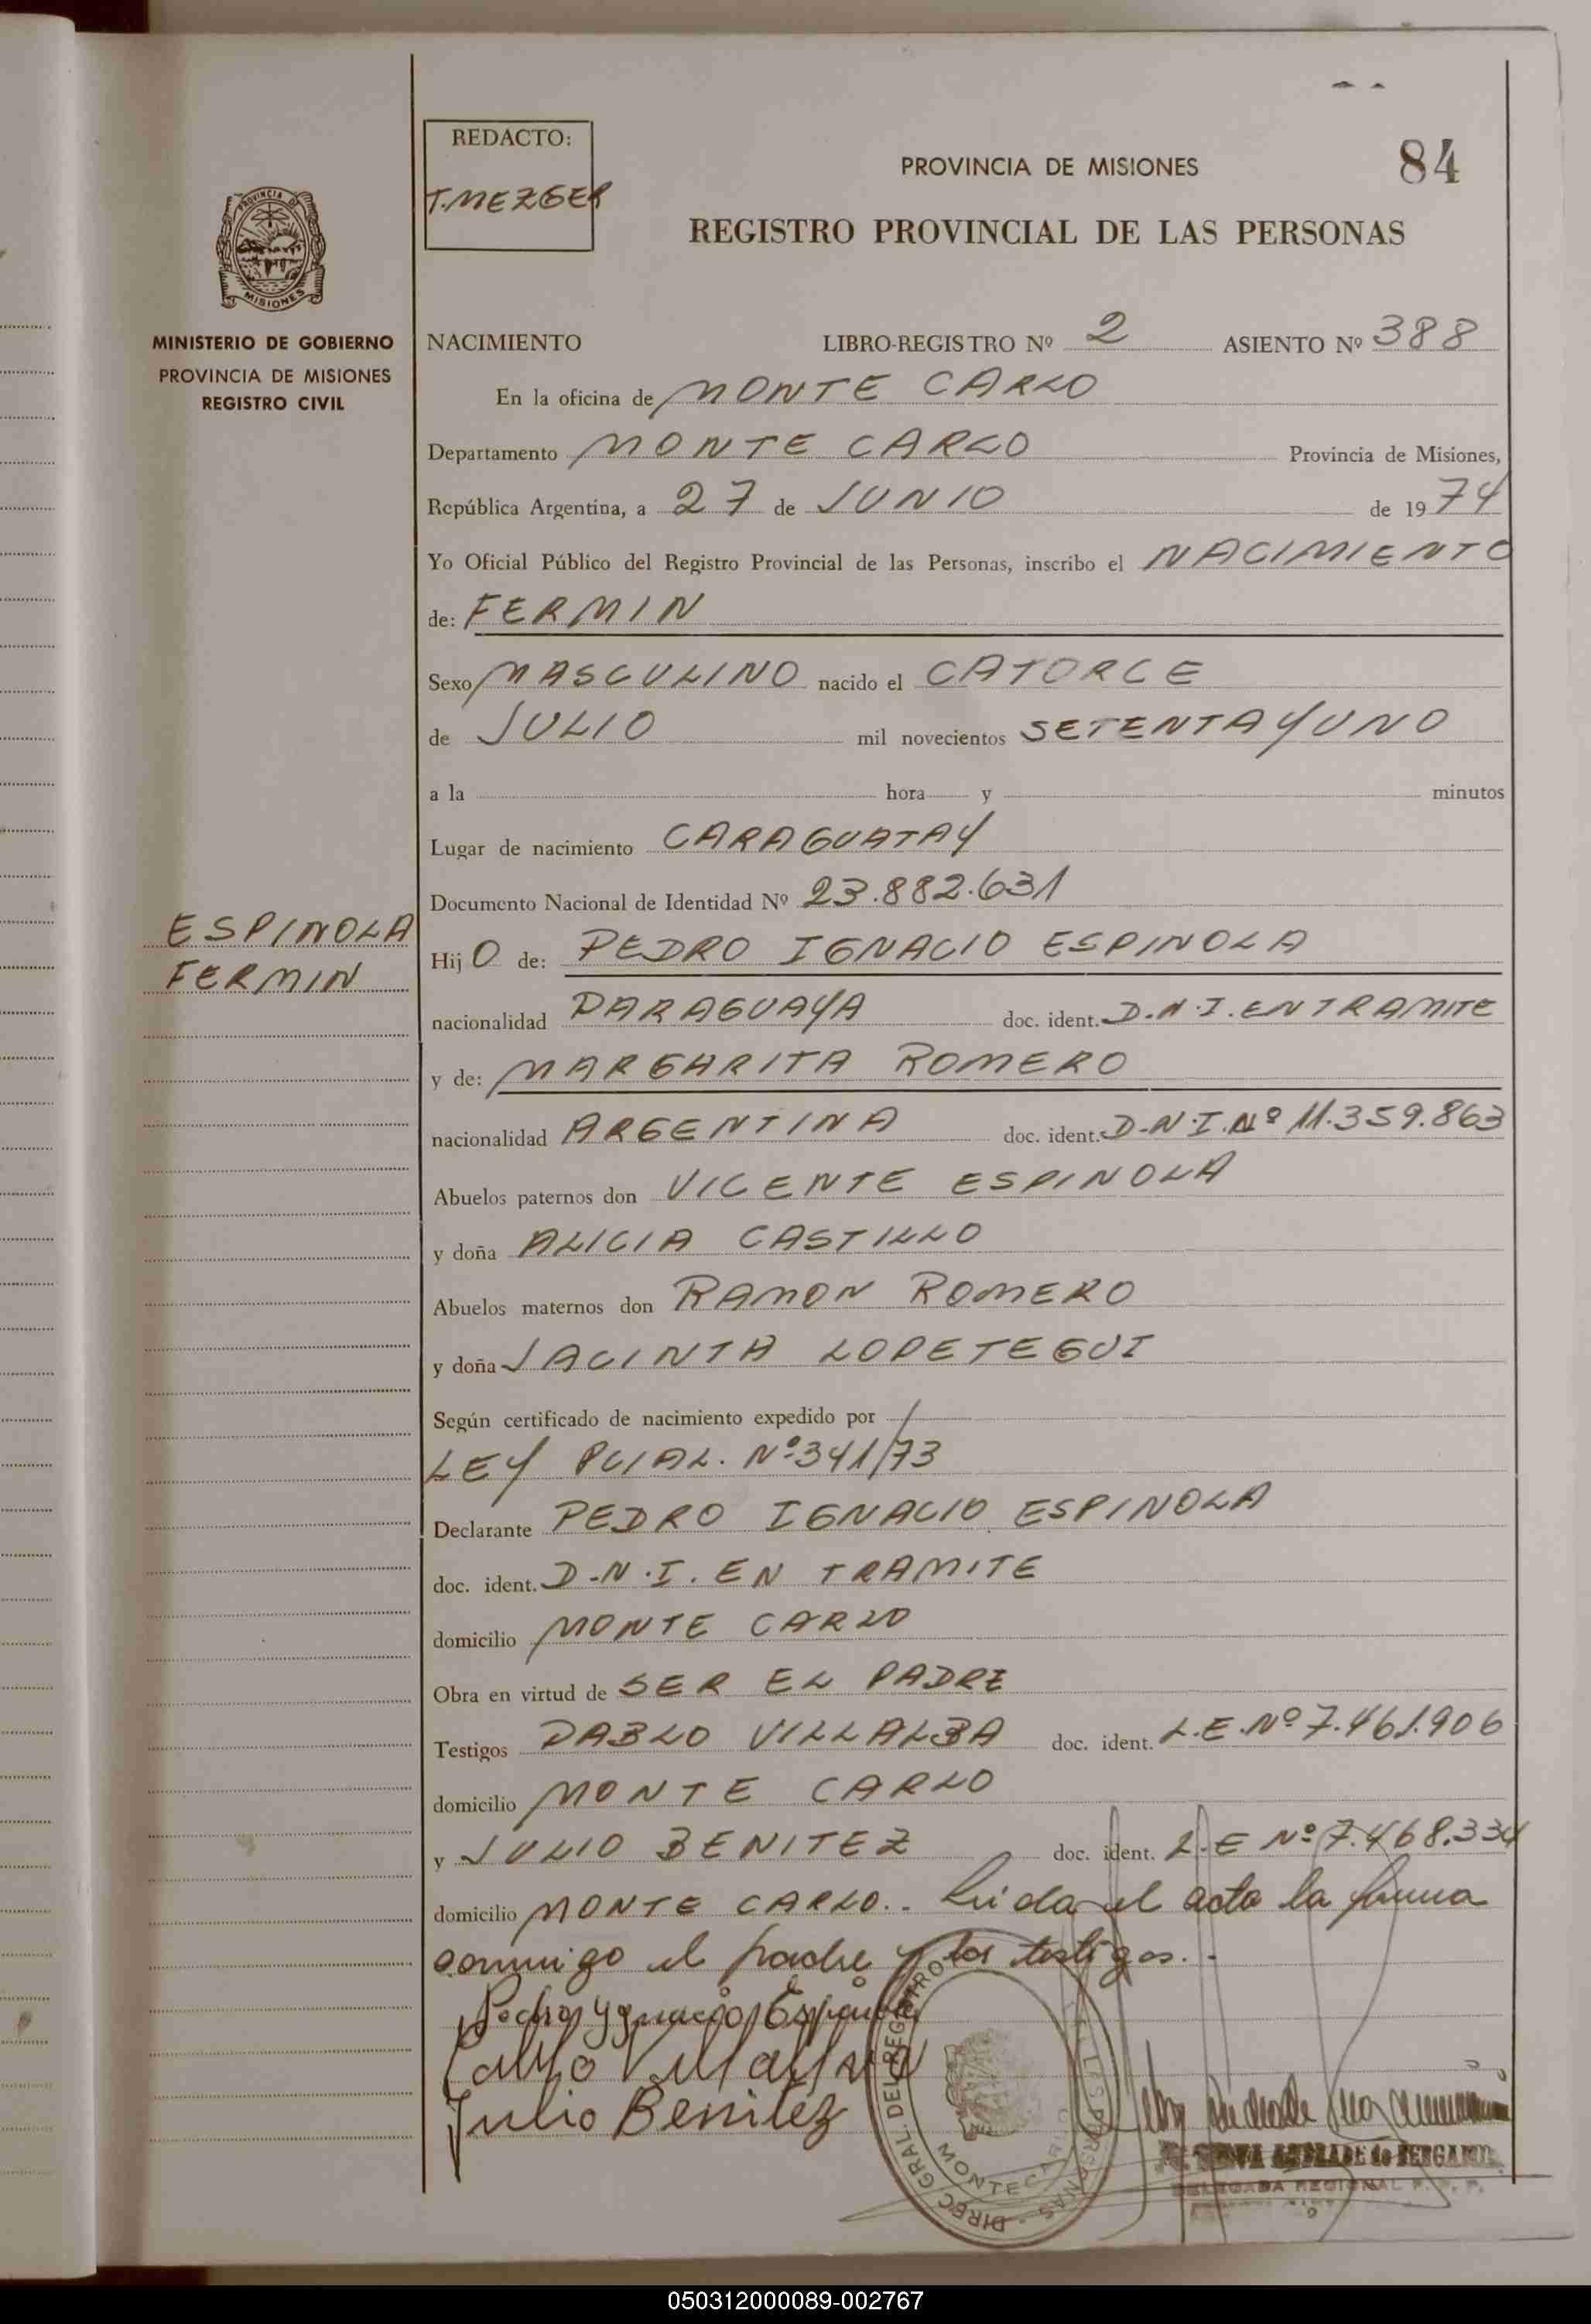 REDACTO:
T. MEZGER
PROVINCIA DE MISIONES
84
REGISTRO PROVINCIAL DE LAS PERSONAS
PROVINCIA DE
MISIONES
MINISTERIO DE GOBIERNO
PROVINCIA DE MISIONES
REGISTRO CIVIL
NACIMIENTO LIBRO-REGISTRO Nº 2 ASIENTO Nº 388
En la oficina de MONTE CARLO
Departamento MONTE CARLO Provincia de Misiones,
República Argentina, a 27 de JUNIO de 1974
Yo Oficial Público del Registro Provincial de las Personas, inscribo el NACIMIENTO
de: FERMIN
Sexo MASCULINO nacido el CATORCE
de JULIO mil novecientos SETENTA Y UNO
a la hora y minutos
Lugar de nacimiento CARAGUATAY
Documento Nacional de Identidad Nº 23.882.631
ESPINOLA
FERMIN
HijO de: PEDRO IGNACIO ESPINOLA
nacionalidad PARAGUAYA doc. ident. D.N.I. EN TRAMITE
y de: MARGARITA ROMERO
nacionalidad ARGENTINA doc. ident. D.N.I. Nº 11.359.863
Abuelos paternos don VICENTE ESPINOLA
y doña ALICIA CASTILLO
Abuelos maternos don RAMON ROMERO
y doña JACINTA LOPETEGUI
Según certificado de nacimiento expedido por /
LEY PCIAL. Nº 341/73
Declarante PEDRO IGNACIO ESPINOLA
doc. ident. D.N.I. EN TRAMITE
domicilio MONTE CARLO
Obra en virtud de SER EL PADRE
Testigos PABLO VILLALBA doc. ident. L.E. Nº 7.461.906
domicilio MONTE CARLO
y JULIO BENITEZ doc. ident. L.E Nº 7.468.334
domicilio MONTE CARLO.. Leida el acta la firma
conmigo el padre y los testigos.-
Pedro Ygnacio Espinola
Pablo Villalba
Julio Benitez
DIREC. GRAL. DEL REGISTRO
MONTECARLO
DELEGADA REGIONAL
050312000089-002767